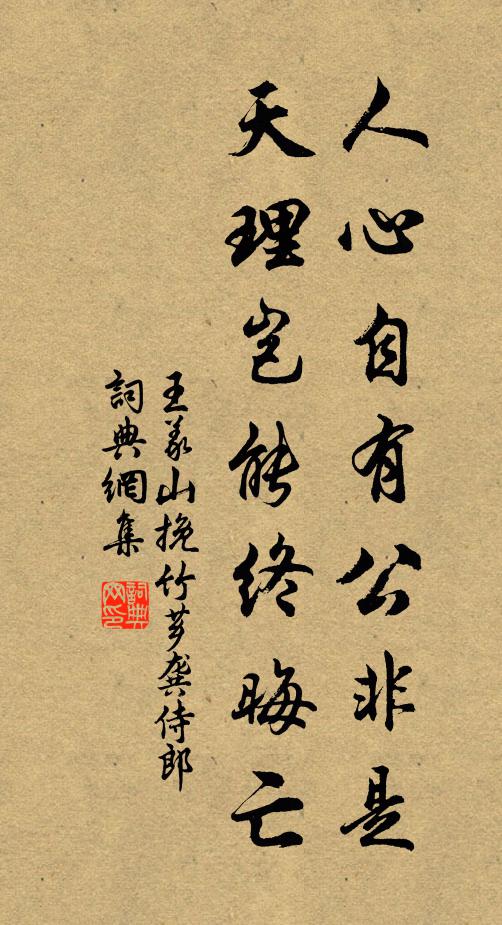 人心自有公非是
天理岂能終晦亡
王義山挽竹芗龔侍郎
詞典網集
詞典
网印